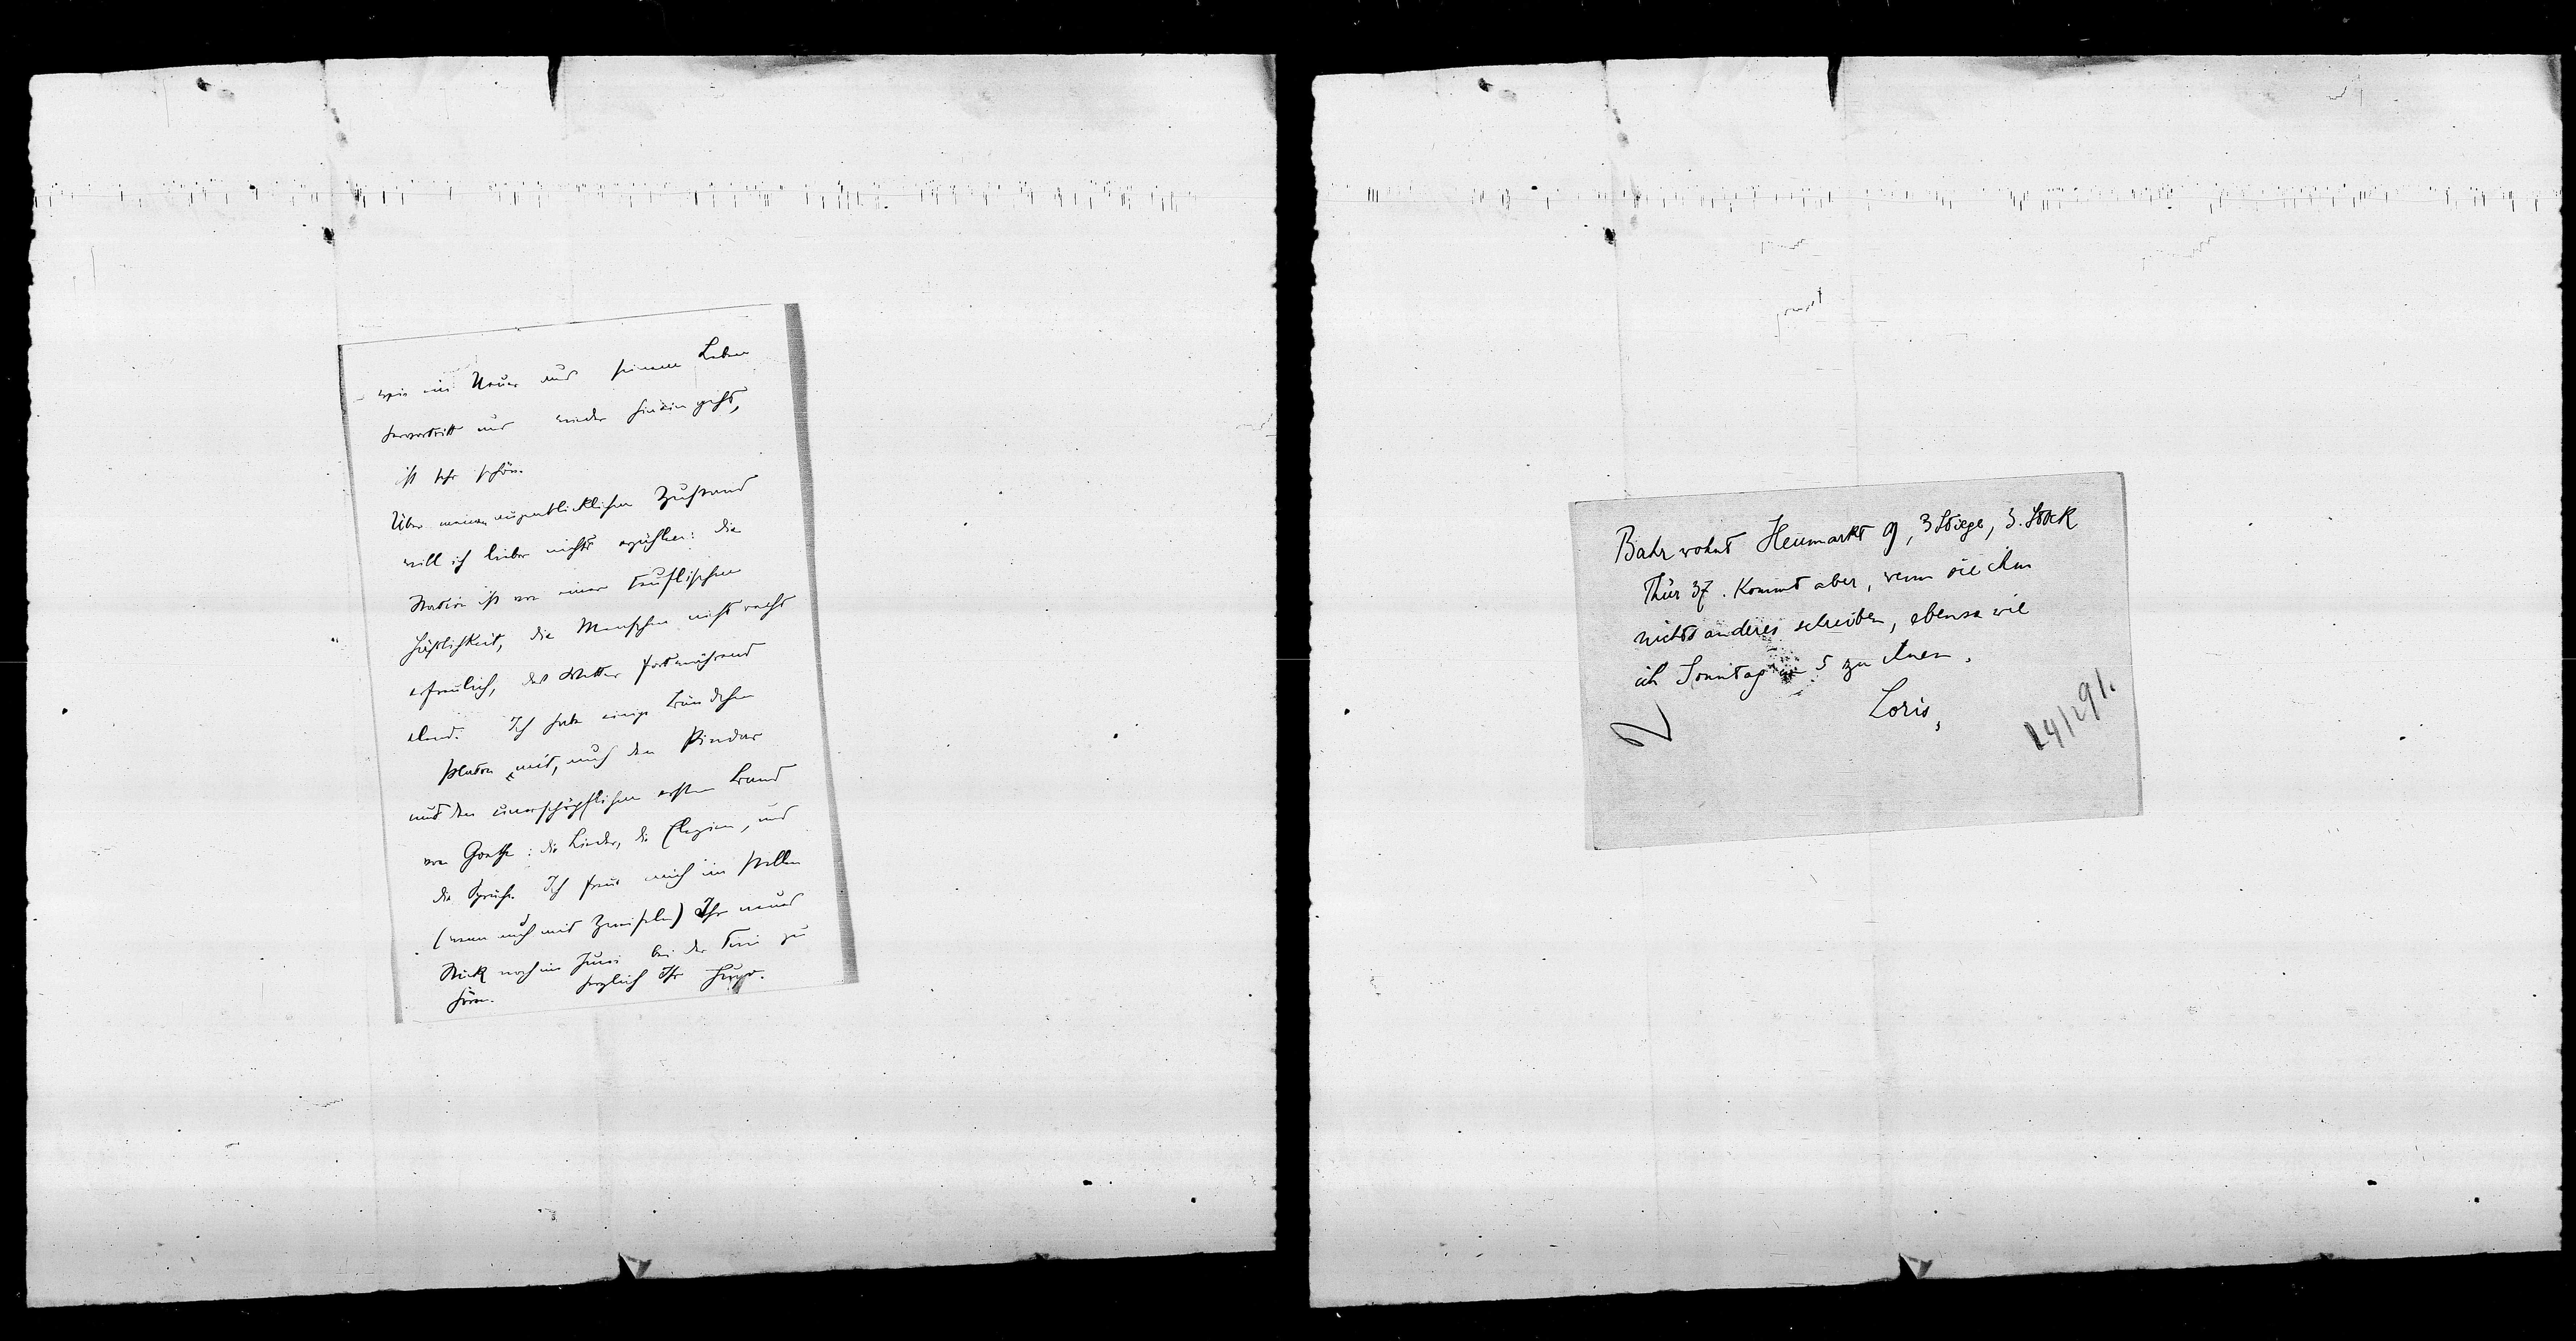 wie ein Neues aus seinem Leben
hervortritt und wieder hineingeht,
ist sehr schön.
Über meinen augenblicklichen Zustand
will ich lieber nichts erzählen: die
Station ist von einer teuflischen
Häßlichkeit, die Menschen nicht recht
erfreulich, das Wetter fortwährend
elend. Ich habe einige Bändchen
Platon mit, auch den Pindar
und den unerschöpflichen ersten Band
von Goethe: die Lieder, die Elegien, und
die Sprüche. Ich freue mich im stillen
(wenn auch mit Zweifeln) Ihr neues
Stück noch im Juni bei der
hören. herzlich Ihr Hugo.
Bahr wohnt Heumarkt 9, 3 Stiege, 3. Stock
Thür 37. Kommt aber, wenn sie ihm
nichts anderes schreiben, ebenso wie
ich Sonntag 5 zu Ihnen.
Loris,